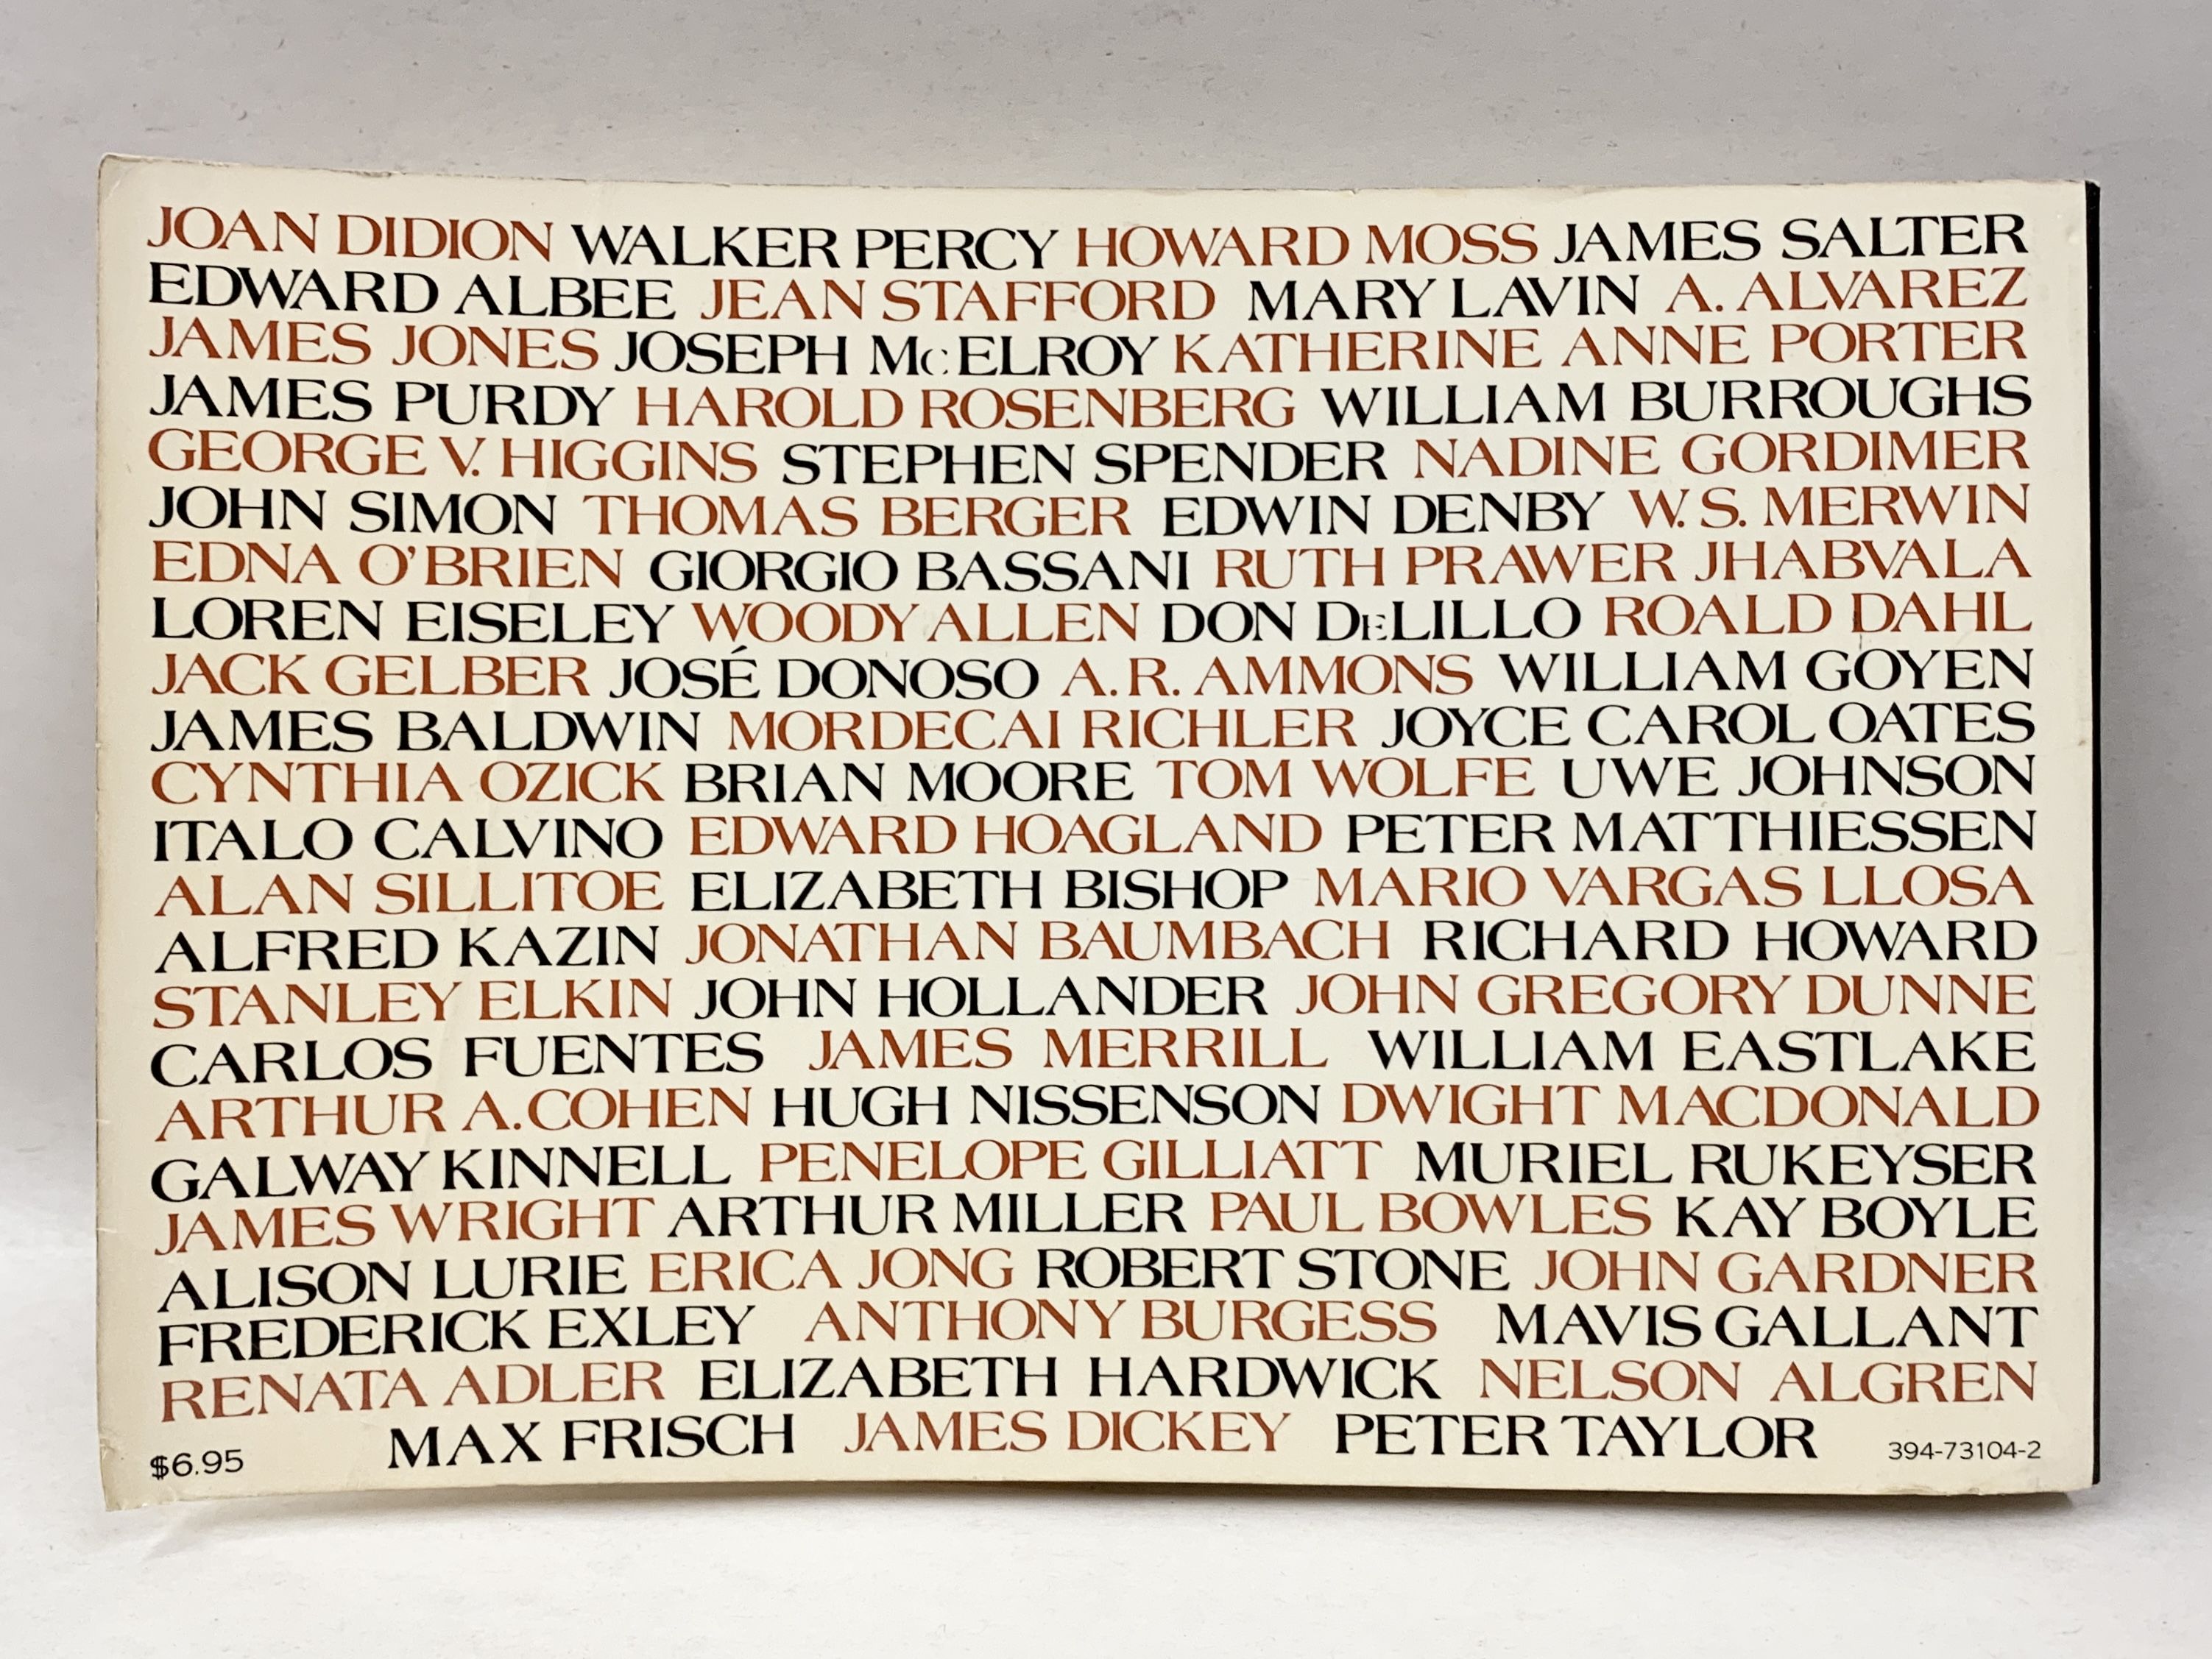 JOAN DIDION WALKER PERCY HOWARD MOSS JAMES SALTER
EDWARD ALBEE JEAN STAFFORD MARY LAVIN A. ALVAREZ
JAMES JONES JOSEPH McELROY KATHERINE ANNE PORTER
JAMES PURDY HAROLD ROSENBERG WILLIAM BURROUGHS
GEORGE V. HIGGINS STEPHEN SPENDER NADINE GORDIMER
JOHN SIMON THOMAS BERGER EDWIN DENBY W. S. MERWIN
EDNA O'BRIEN GIORGIO BASSANI RUTH PRAWER JHABVALA
LOREN EISELEY WOODY ALLEN DON DELILLO ROALD DAHL
JACK GELBER JOSÉ DONOSO A. R. AMMONS WILLIAM GOYEN
JAMES BALDWIN MORDECAI RICHLER JOYCE CAROL OATES
CYNTHIA OZICK BRIAN MOORE TOM WOLFE UWE JOHNSON
ITALO CALVINO EDWARD HOAGLAND PETER MATTHIESSEN
ALAN SILLITOE ELIZABETH BISHOP MARIO VARGAS LLOSA
ALFRED KAZIN JONATHAN BAUMBACH RICHARD HOWARD
STANLEY ELKIN JOHN HOLLANDER JOHN GREGORY DUNNE
CARLOS FUENTES JAMES MERRILL WILLIAM EASTLAKE
ARTHUR A. COHEN HUGH NISSENSON DWIGHT MACDONALD
GALWAY KINNELL PENELOPE GILLIATT MURIEL RUKEYSER
JAMES WRIGHT ARTHUR MILLER PAUL BOWLES KAY BOYLE
ALISON LURIE ERICA JONG ROBERT STONE JOHN GARDNER
FREDERICK EXLEY ANTHONY BURGESS MAVIS GALLANT
RENATA ADLER ELIZABETH HARDWICK NELSON ALGREN
MAX FRISCH JAMES DICKEY PETER TAYLOR
$6.95
394-73104-2